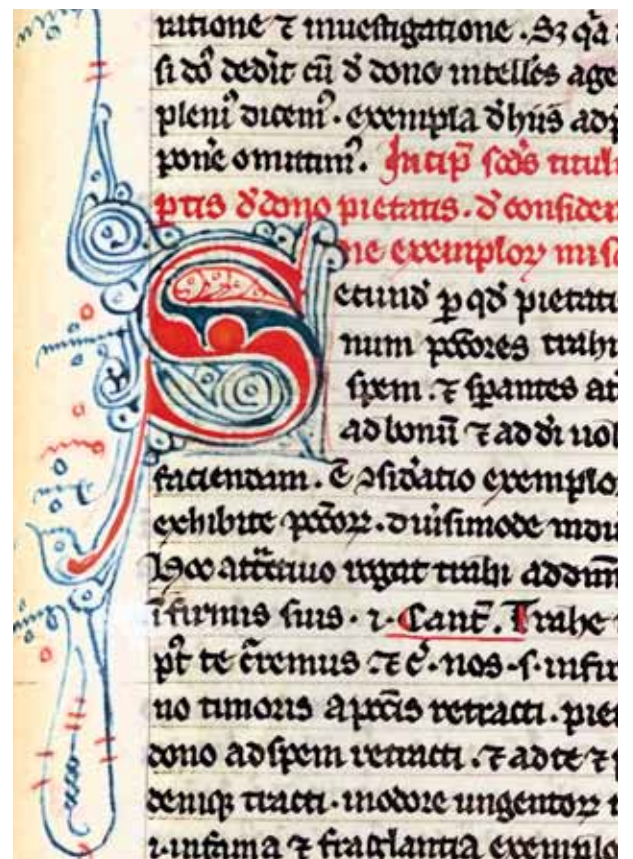 ratione ⁊ inuestigatione. Sꝫ q̃a
si dõ dedit cũ đ dono intell̃s age
pleniꝰ dicemꝰ. exempla đ hiis adp̃
pon̄e omittimꝰ. Incip̃ scđs titul
đ dono pietatis. đ consider
ne exemploꝝ mis̃
Secund ꝑ qđ pietati
num pc̃c̃ores trahi
spem. ⁊ sperantes at
ad bonũ ⁊ ad đi uol
faciendam. exemplo
exhibite diuisimode indu
rogat trahi
ĩfirmis suis. i. Cant̃. Trahe
te c̃remus ⁊ c̃. nos .s. infir
no timoris retracti. pie
dono ad spem retracti. ⁊ ad te ⁊
deniqꝫ tracti. in odore ungentoꝝ
i. infima ⁊ fraglantia exemplo